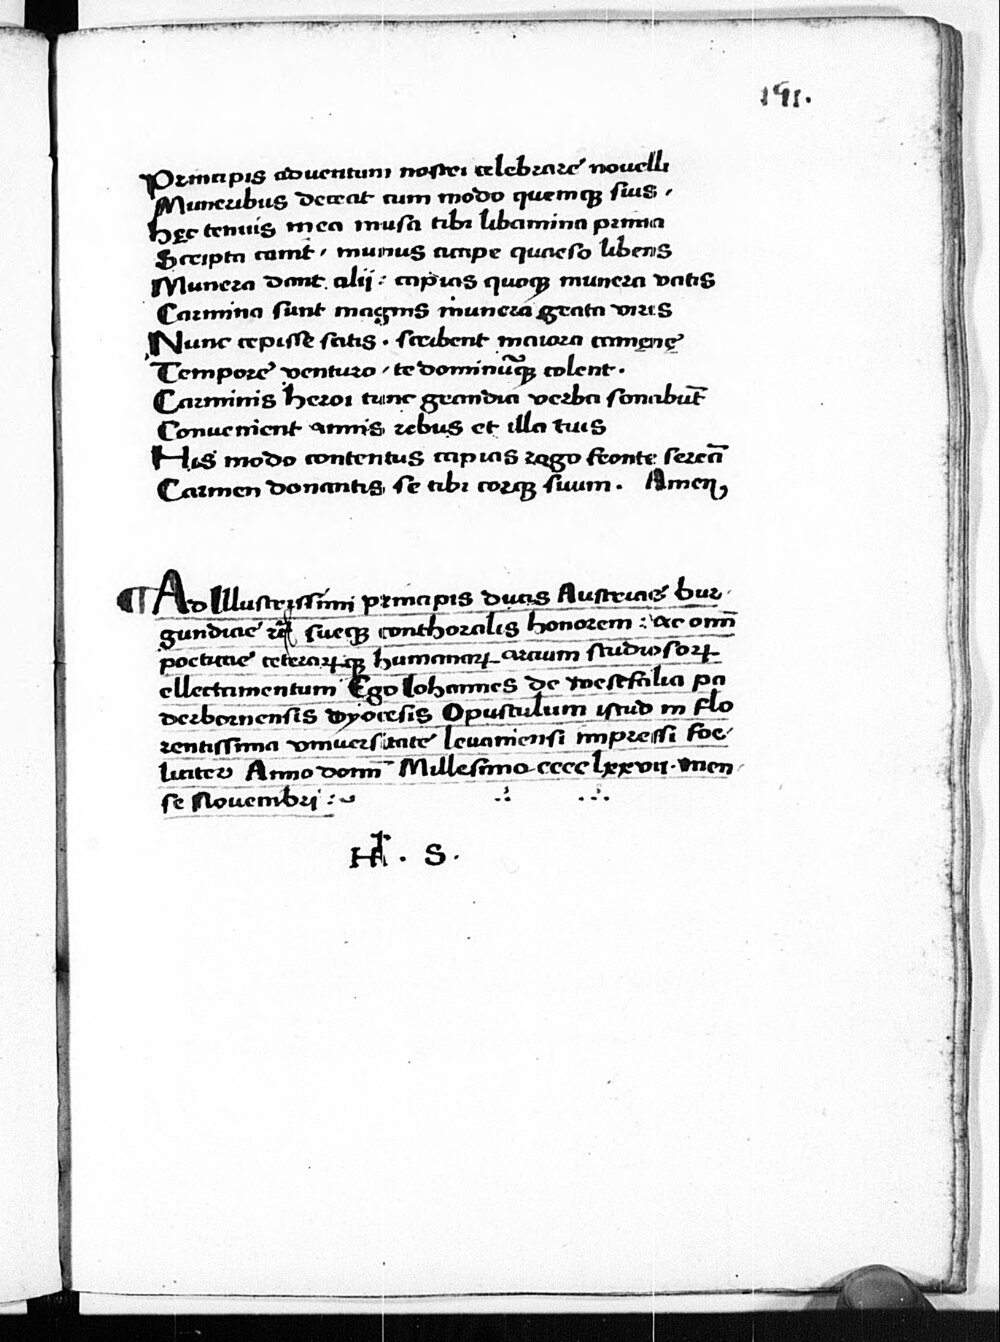 191.
Principis aduentum nostri celebrare nouelli
Muneribus deceat cum modo quemq₃ suis .
hęc tenuis mea musa tibi libamina prima
Scripta canit , munus accipe quaeso libens
Munera dant alij : capias quoq₃ munera vatis
Carmina sunt magnis munera grata viris
Nunc cepisse satis . scribent maiora camęnę
Tempore venturo , te dominūq₃ colent .
Carminis heroi tunc grandia verba sonabūt
Conuenient annis rebus et illa tuis
His modo contentus capias rogo fronte serenā
Carmen donantis se tibi corq₃ suum . Amen,
¶ Ad Illustrissimi principis ducis Austriae bur
gundiae suęq₃ conthoralis honorem : ac omī
poeticae ceterarꝝq₃ humanarꝝ arcium studiosorꝝ
ellectamentum Ego Iohannes de westfalia pa
derbornensis dyocesis Opusculum istud in flo
rentissima vniuersitate louaniensi impressi foe
liciter Anno domī Millesimo cccc lxxvii . men
se Nouembri :
. S .